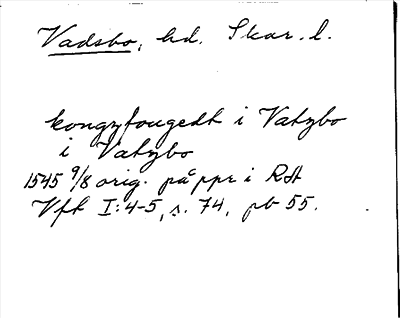 Vadsbo, hd. Skar. l.
kongzfougedt i Vatzbo
i Vatzbo
1545 9/8 orig. på ppr i RA
Vft I:4-5, s. 74, pb 55.